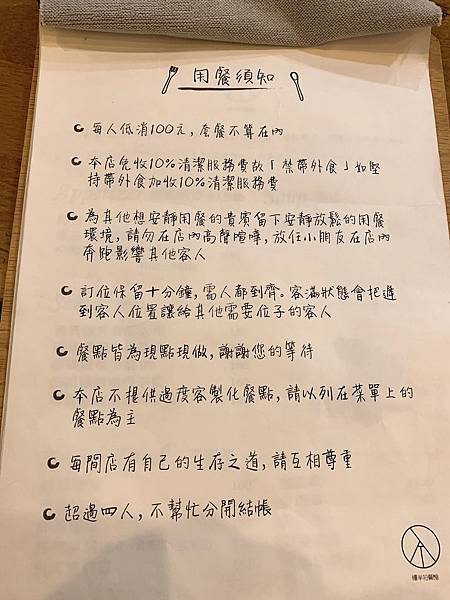 用餐須知
每人低消100元,套餐不算在內
本店免收10%清潔服務費故「禁帶外食」如堅
持帶外食加收10%清潔服務費
為其他想安靜用餐的貴賓留下安靜放鬆的用餐
環境,請勿在店內高聲喧嘩,放任小朋友在店內
奔跑影響其他客人
訂位保留十分鐘,需人都到齊。客滿狀態會把遲
到客人位置讓給其他需要位子的客人
餐點皆為現點現做,謝謝您的等待
本店不提供過度客製化餐點,請以列在菜單上的
餐點為主
每間店有自己的生存之道,請互相尊重
超過四人,不幫忙分開結帳